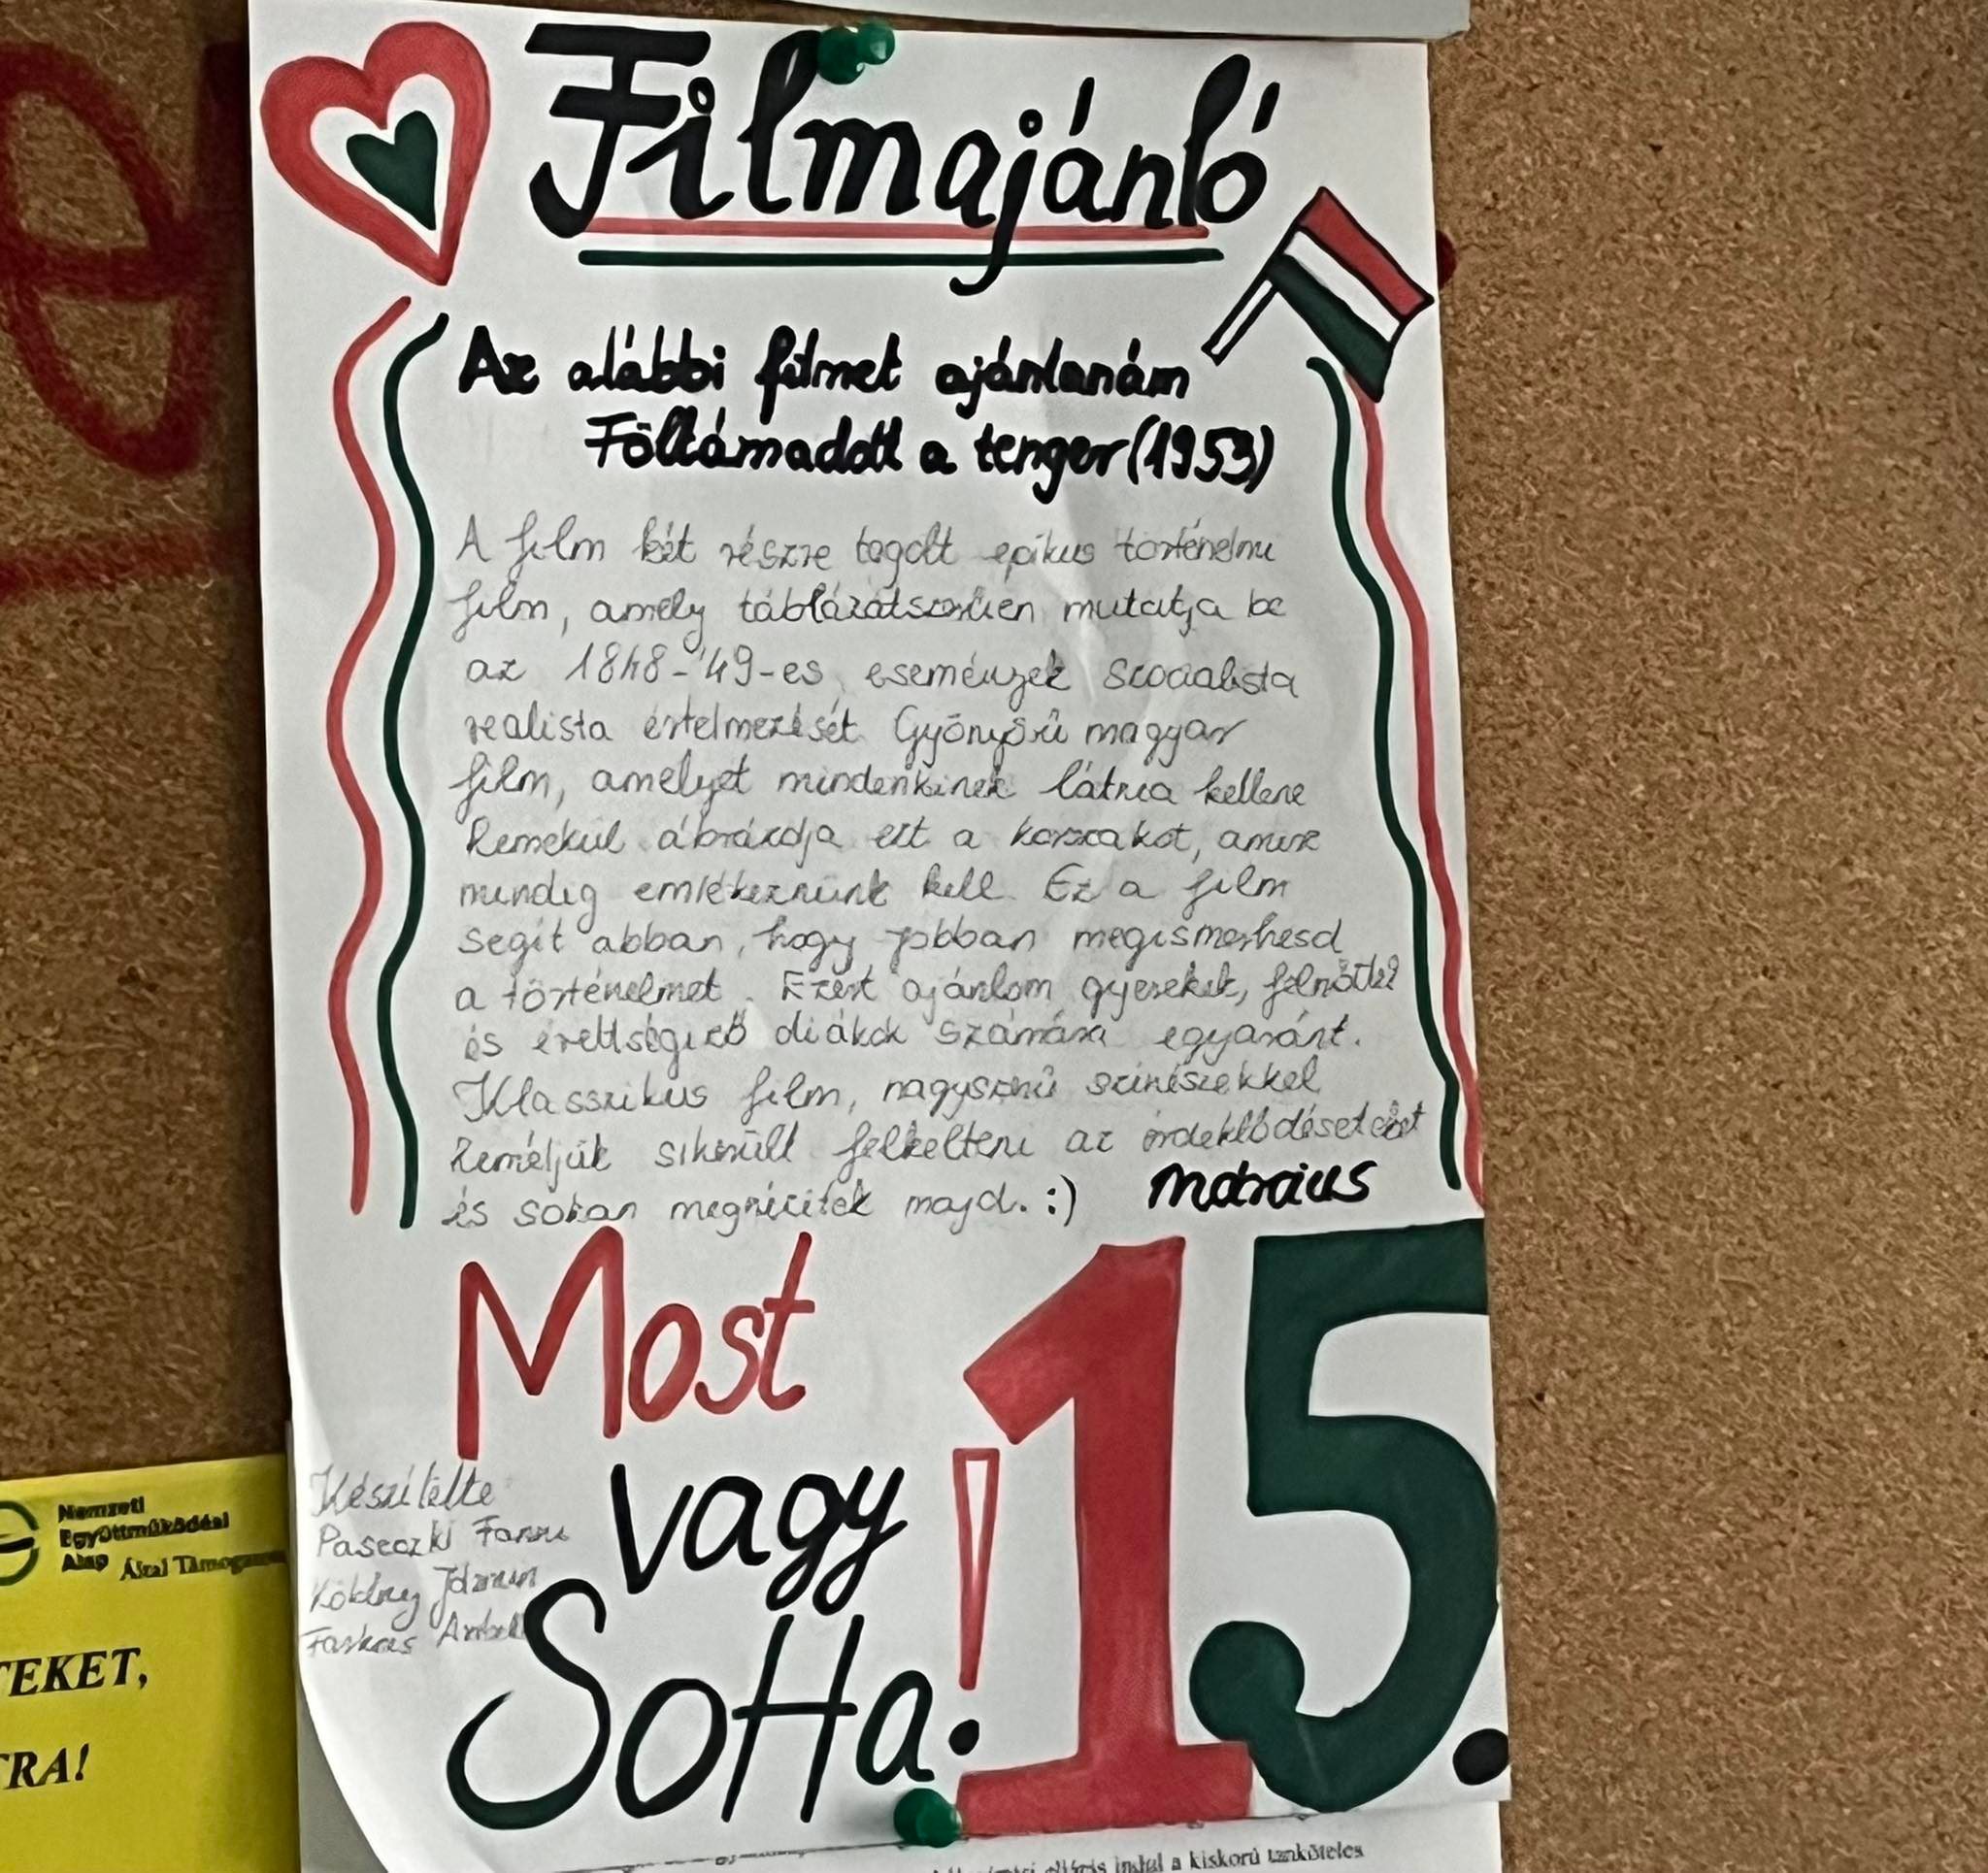 Filmajánló
Az alábbi filmet ajánlanám
Föltámadott a tenger (1953)
A film két részre tagolt epikus történelmi
film, amely táblázatszerűen mutatja be
az 1848-'49-es események szocialista
realista értelmezését. Gyönyörű magyar
film, amelyet mindenkinek látnia kellene
Remekül ábrázolja ezt a korszakot, amire
mindig emlékeznünk kell. Ez a film
segít abban, hogy jobban megismerhesd
a történelmet. Ezért ajánlom gyerekek, felnőttek
és érettségiző diákok számára egyaránt.
Klasszikus film, nagyszerű színészekkel
Reméljük sikerült felkelteni az érdeklődéseteket
és sokan megnézitek majd. :)
Március
15.
Most
vagy
SoHa!
Készítette
Paseczki Fanni
Nemzeti
Együttműködési
Alap Által
TEKET,
TRA!
indul a kiskorú tanköteles